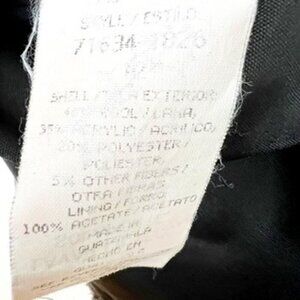 STYLE/ESTILO
71634-1826
SHELL/TELA EXTERIOR:
WOOL/LANA,
35% ACRYLIC/ACRILICO,
20% POLYESTER/
POLIESTER,
5% OTHER FIBERS/
OTRA FIBRAS
LINING/FORRO
100% ACETATE/ACETATO
MADE IN
GUATEMALA
HECHO EN